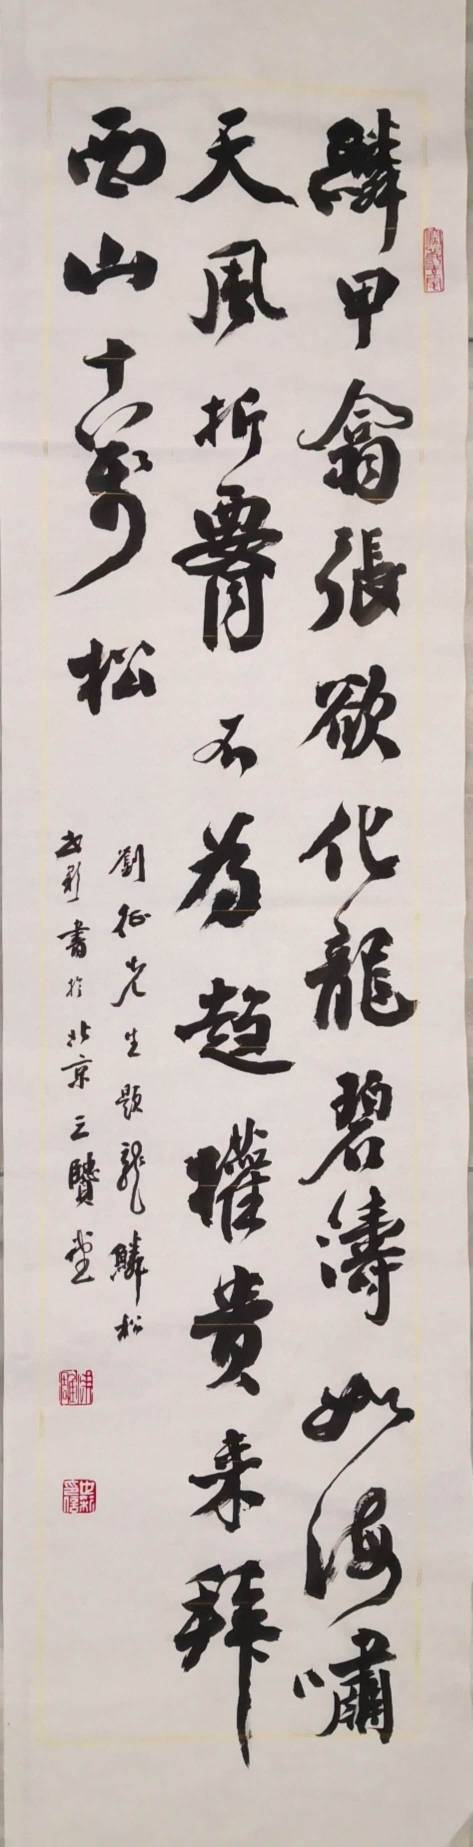 鱗甲翕張欲化龍碧濤如海嘯
天風折腰不為趨權貴来拜
西山十萬松
劉征先生題龍鱗松
書於北京三堂